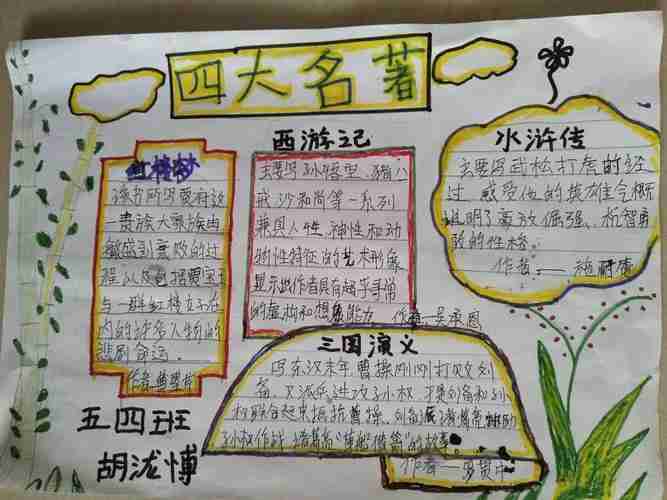 四大名著
红楼梦
该书所写贾府这
贵族大家族由
敏感到衰败的过
程以及
与一群红楼女子在
内的许多人物的
悲剧命运。
作者曹雪芹
西游记
主要写孙悟空、猪八
戒沙和尚等一系列
兼具人性、神性和动
物性特征的艺术形象
显示出作者具有超乎寻常
的虚构和想象能力
作者—吴承恩
水浒传
主要写武松打虎的经
过,感受他的英雄气概
说明了豪放倔强、机智勇
敢的性格。
作者—施耐庵
三国演义
写东汉末年曹操刚刚打败刘
备,又派兵进攻孙权,于是刘备和孙
权联合起来抵抗曹操,刘备派了诸葛亮
孙权作战,诸葛亮“草船借箭”的故事。
作者—罗贯中
五四班
胡泷博